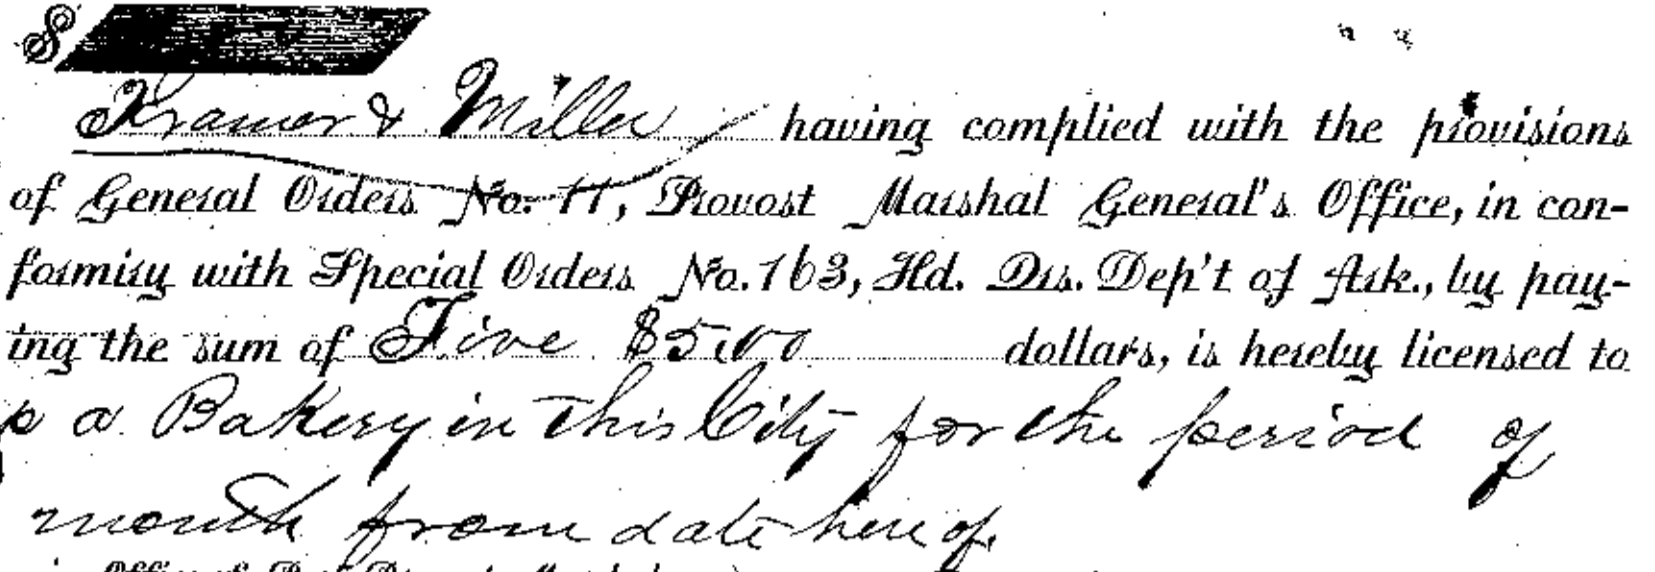 $
Kramer & Miller having complied with the provisions
of General Orders No. 11, Provost Marshal General's Office, in con-
formity with Special Orders No. 163, Hd. Qrs. Dep't of Ark., by pay-
ing the sum of Five $5.00 dollars, is hereby licensed to
p a Bakery in this City for the period of
month from date here of.